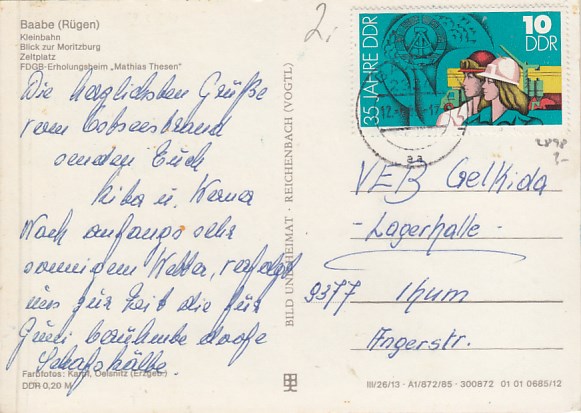 Baabe (Rügen)
Kleinbahn
Blick zur Moritzburg
Zeltplatz
FDGB-Erholungsheim „Mathias Thesen"
2,
35 JAHRE DDR
10
DDR
Die herzlichsten Grüße
vom Ostseestrand
senden Euch
u. Werner
Nach anfangs sehr
sonnigem Wetter, verfolgt
uns zur Zeit die für
Juni berühmte doofe
Schafskälte.
VEB GelKida
- Lagerhalle -
9377 Thum
Angerstr.
BILD UND HEIMAT · REICHENBACH (VOGTL)
Farbfotos: Oelsnitz (Erzgeb.)
DDR 0,20 M
III/26/13 · A1/872/85 · 300872 01 01 0685/12